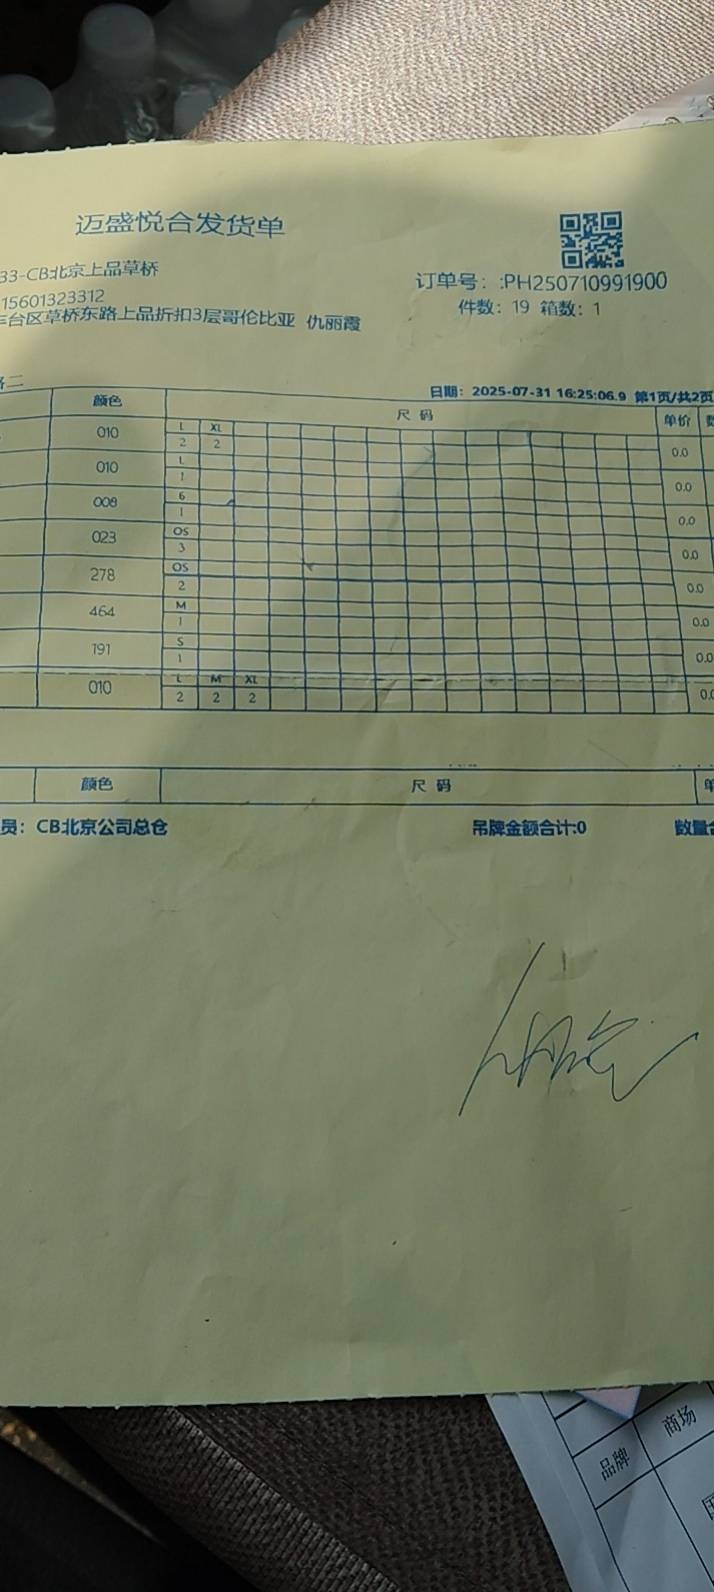 迈盛悦合发货单
33-CB北京上品草桥
15601323312
台区草桥东路上品折扣3层哥伦比亚 仇丽霞
订单号：:PH250710991900
件数：19 箱数：1
日期：2025-07-31 16:25:06.9 第1页/共2页
颜色 尺 码 单价
010 L XL 0.0
2 2
010 L 0.0
1
008 6 0.0
1
023 OS 0.0
3
278 OS 0.0
2
464 M 0.0
1
191 S 0.0
1
010 L M XL
2 2 2
颜色 尺 码
员：CB北京公司总仓 吊牌金额合计:0 数量
商场
品牌